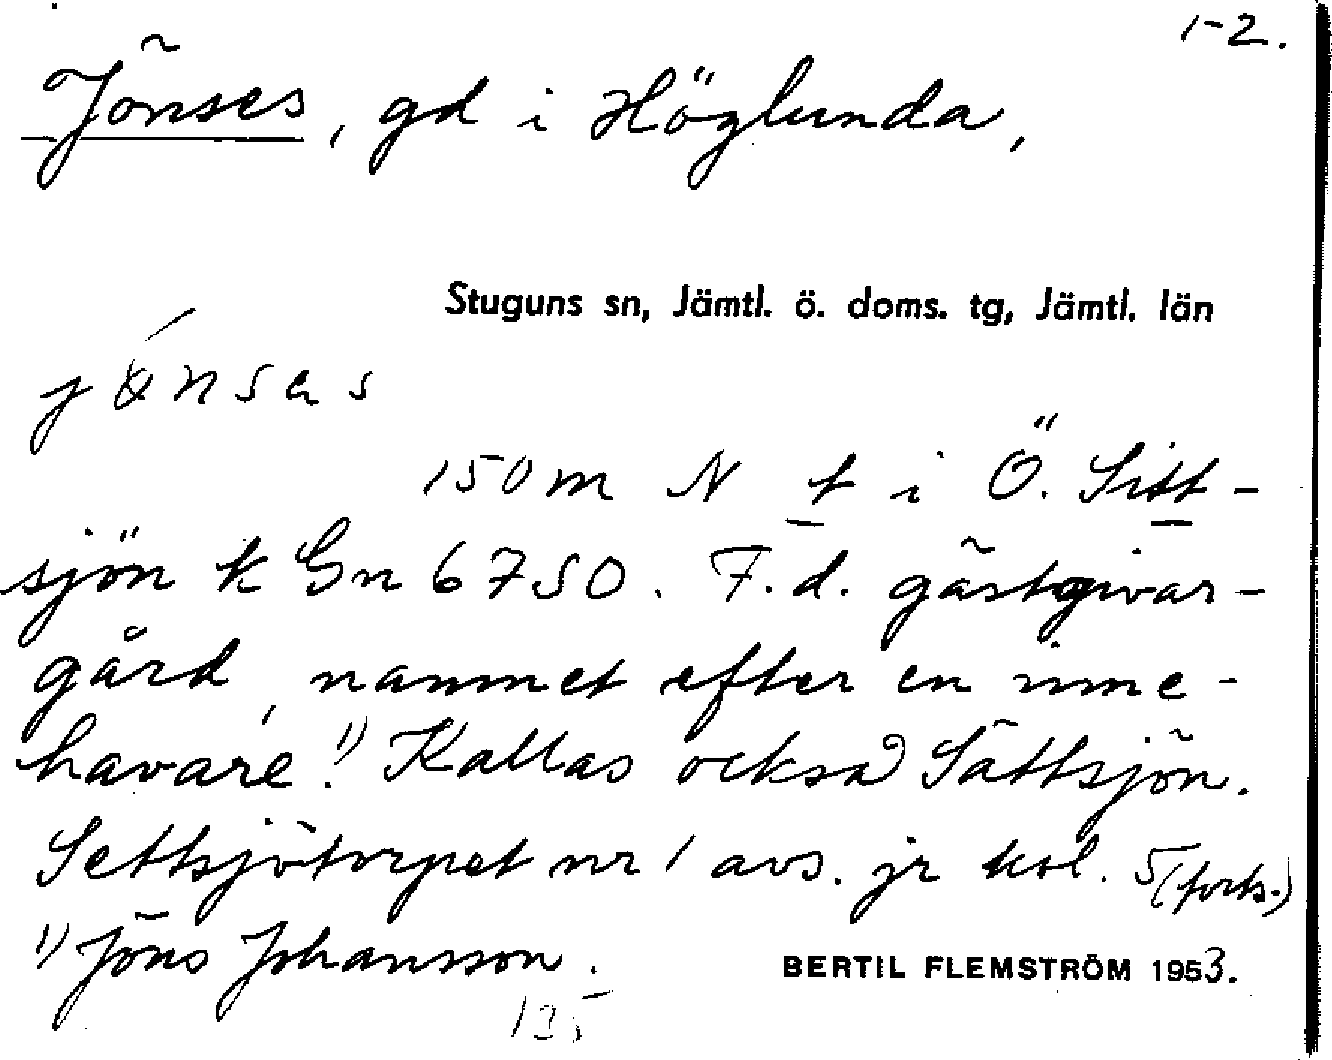 1-2.
Jönses, gd i Höglunda,
Stuguns sn, Jämtl. ö. doms. tg, Jämtl. län
150 m N t i Ö. Sitt-
sjön k Gn 6750. F.d. gästgivar-
gård, namnet efter en inne-
havare.¹⁾ Kallas också Sättsjön.
Settsjötorpet nr 1 avs. jr kol. 5 (forts.)
¹⁾ Jöns Johansson.
BERTIL FLEMSTRÖM 1953.
135